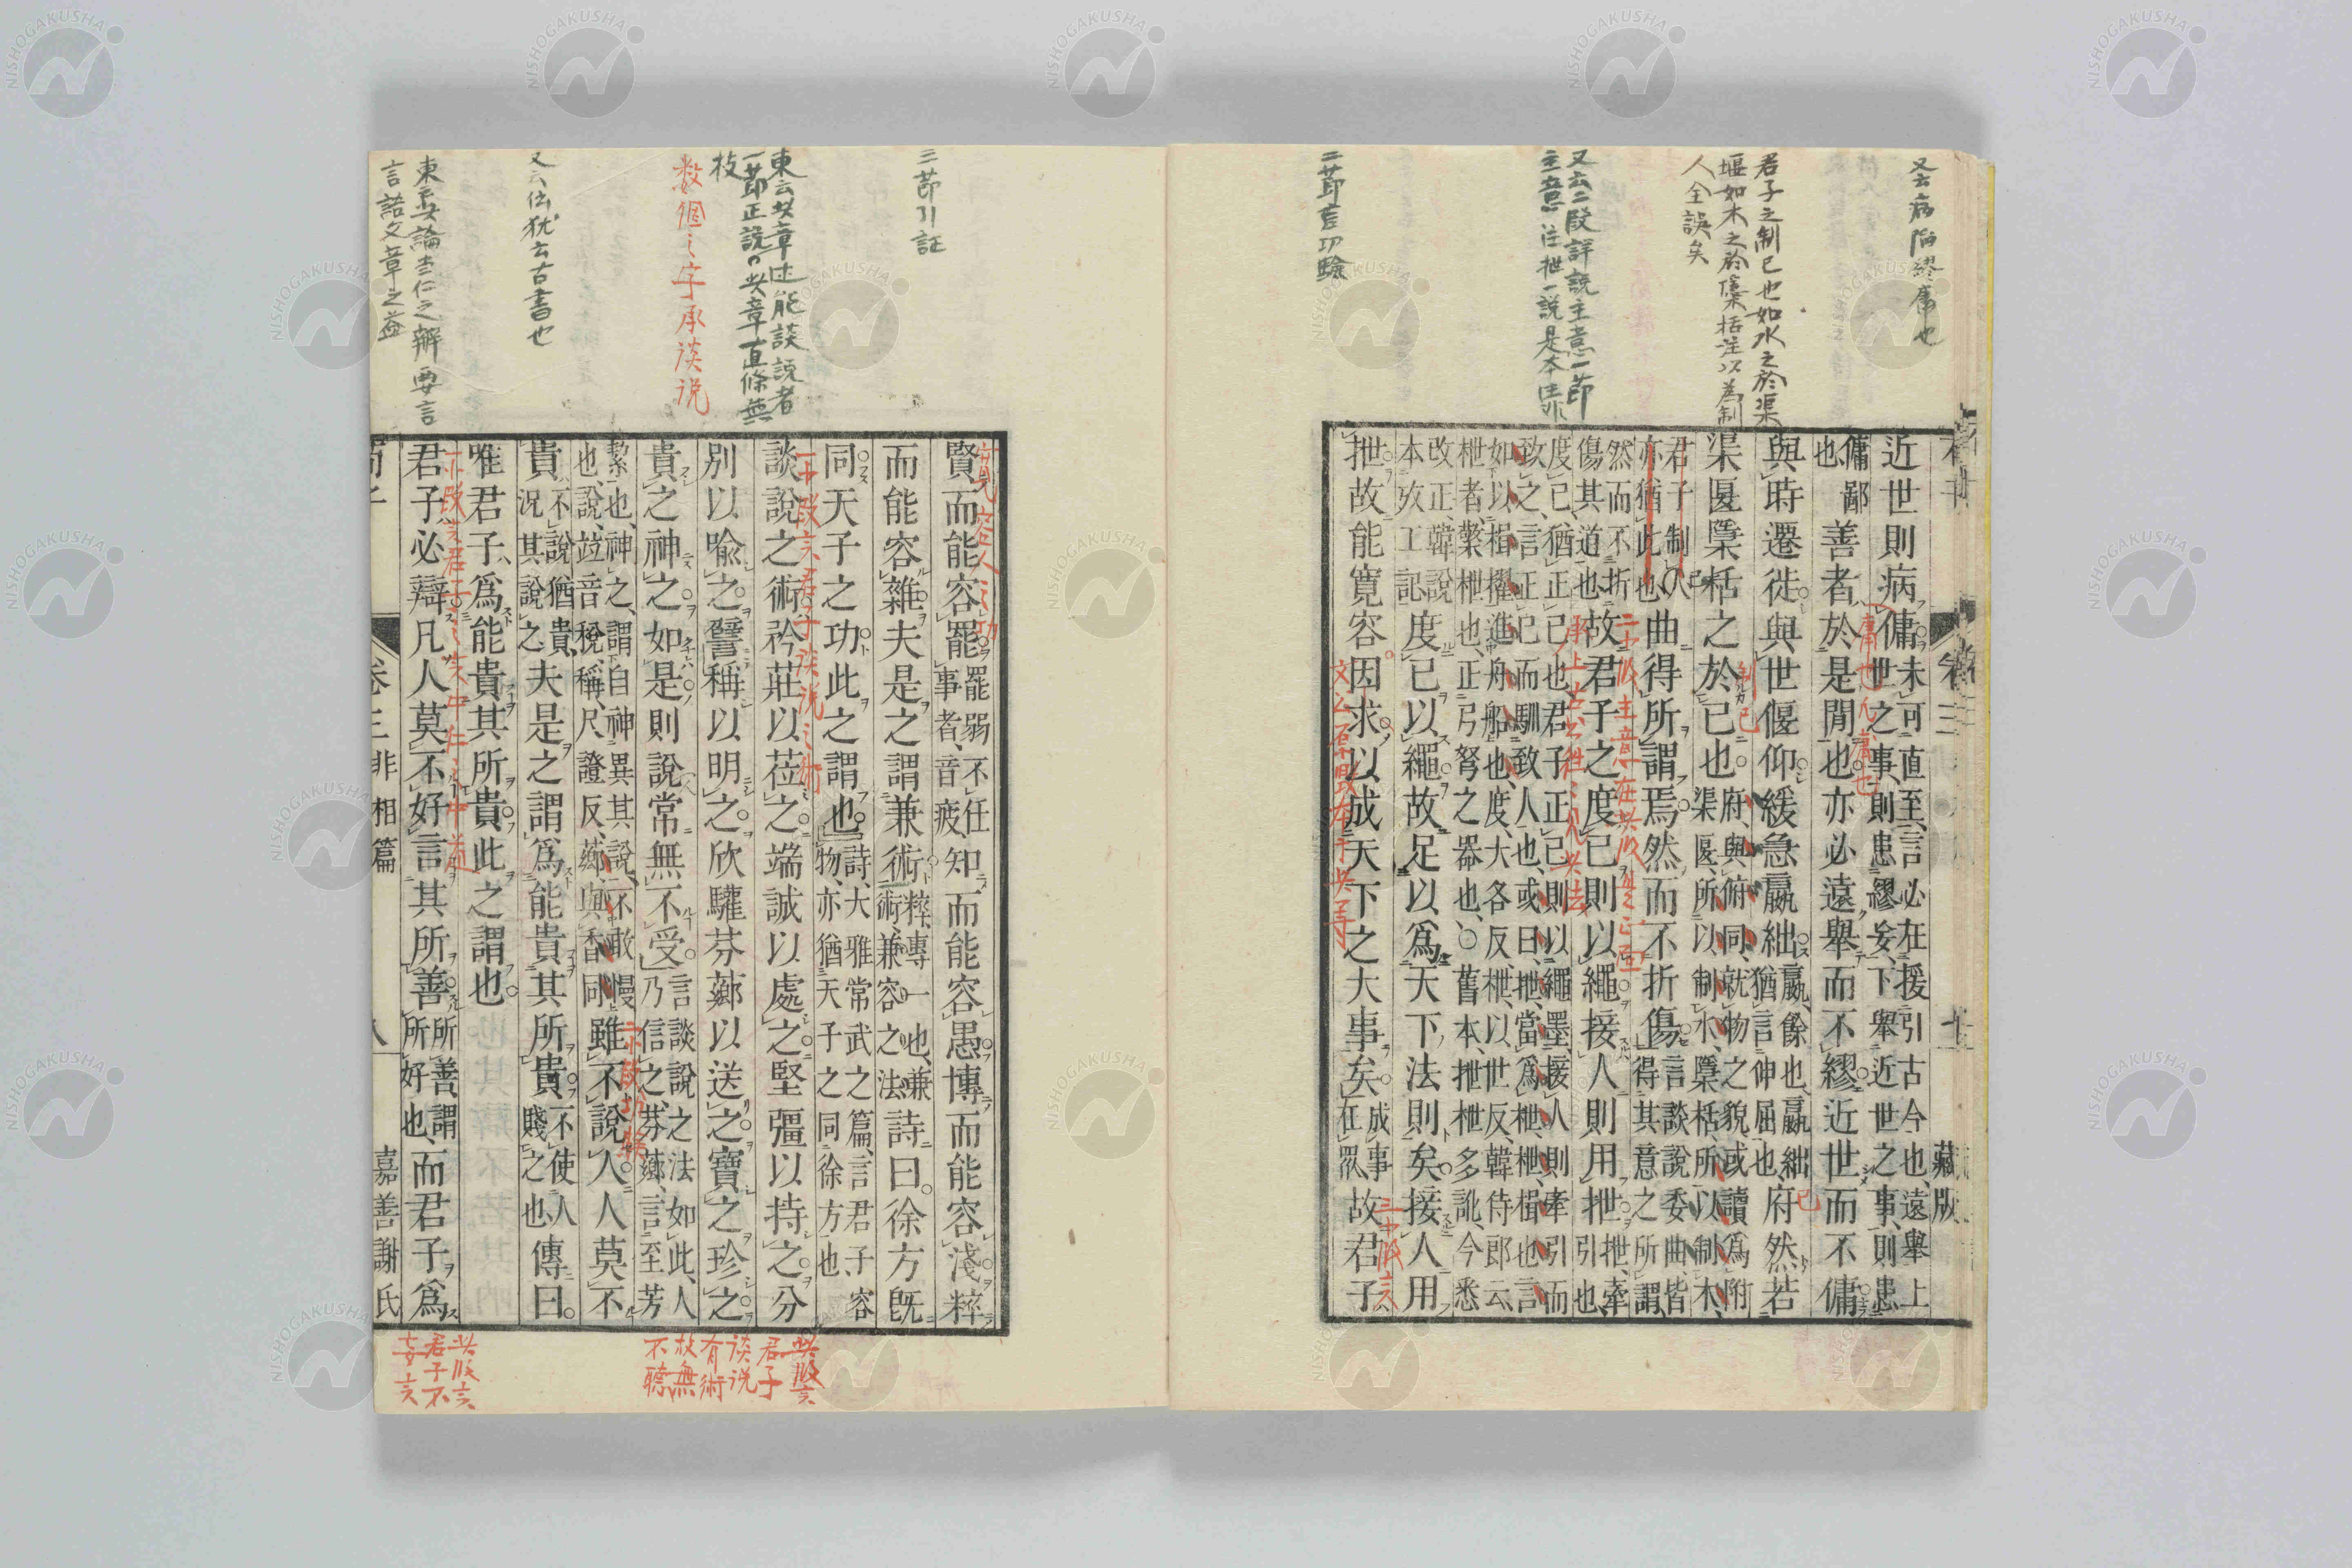 又云病陷繆庸也
君子之制己也如水之於渠
堰如木之於檃栝注以為制
人全誤矣
又云二段詳説主意一節
主意注抴一説是本出
二節言功驗
近世則病傭未可直至言必在援引古今也遠舉上
世之事則患繆妄下舉近世之事則患
傭鄙
也善者於是閒也亦必遠舉而不繆近世而不傭
與時遷徙與世偃仰緩急嬴絀嬴餘也嬴絀
猶言伸屈也府然若
渠匽檃栝之於己也府與俯同就物之貌或讀爲附
渠匽所以制水檃栝所以制木
君子制人
亦猶此也曲得所謂焉然而不折傷言談說委曲皆
得其意之所謂
然而不折
傷其道也故君子之度己則以繩接人則用抴抴牽
引也
度己猶正己也君子正己則以繩墨接人則牽引而
致之言正己而馴致人也或曰抴當爲枻枻楫也言
如以楫櫂進舟船也度大各反枻以世反韓侍郎云
枻者檠枻也正弓弩之器也○舊本抴枻多訛今悉
改正韓說
本攷工記度己以繩故足以爲天下法則矣接人用
抴故能寬容因求以成天下之大事矣成事
在眾故君子
荀子
卷三
藏版
庸世凡常也
制己
己
二中段主意在此段
承上
三中段言
三節引証
東云此章述能談説者
一節正説此章直條無
枝
数個之字承談説
又云伝犹云古書也
東云此論言仁之辨要言
言語文章之益
賢而能容罷罷弱不任
事者音疲知而能容愚博而能容淺粹
而能容雜夫是之謂兼術粹專一也兼
術兼容之法詩曰徐方旣
同天子之功此之謂也詩大雅常武之篇言君子容
物亦猶天子之同徐方也
談說之術矜莊以莅之端誠以處之堅彊以持之分
別以喻之譬稱以明之欣驩芬薌以送之寶之珍之
貴之神之如是則說常無不受言談說之法如此人
乃信之芬薌言至芳
絜也神之謂自神異其說不敢慢
也說竝音稅稱尺證反薌與香同雖不說人人莫不
貴不說猶貴
況其說之夫是之謂爲能貴其所貴不使人
賤之也傳曰
唯君子爲能貴其所貴此之謂也
君子必辯凡人莫不好言其所善所善謂
所好也而君子爲
荀子
卷三非相篇
八
嘉善謝氏
寛容人之功
一中段言君子談説之術
二中段功驗
一中段言君子之言中仁之中道
此段言
君子
談説
有術
故無
不聽
此段言
君子不
妄言